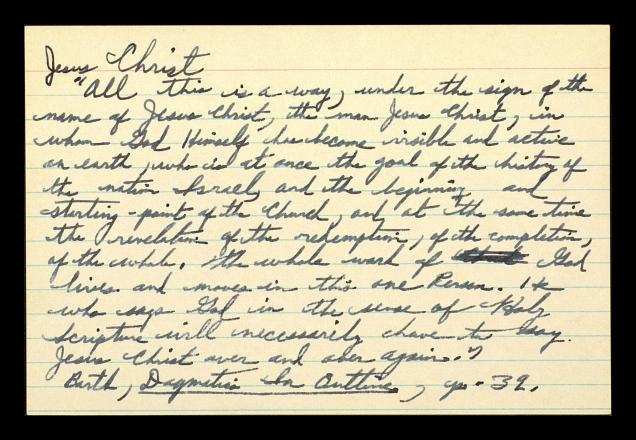 Jesus Christ
"All this is a way, under the sign of the
name of Jesus Christ, the man Jesus Christ, in
whom God Himself has become visible and active
on earth, who is at once the goal of the history of
the nation Israel, and the beginning and
starting-point of the Church, and at the same time
the revelation of the redemption, of the completion,
of the whole. The whole work of God
lives and moves in this one Person. He
who says God in the sense of Holy
Scripture will necessarily have to say
Jesus Christ over and over again."
Barth, Dogmatics In Outline, p. 39.